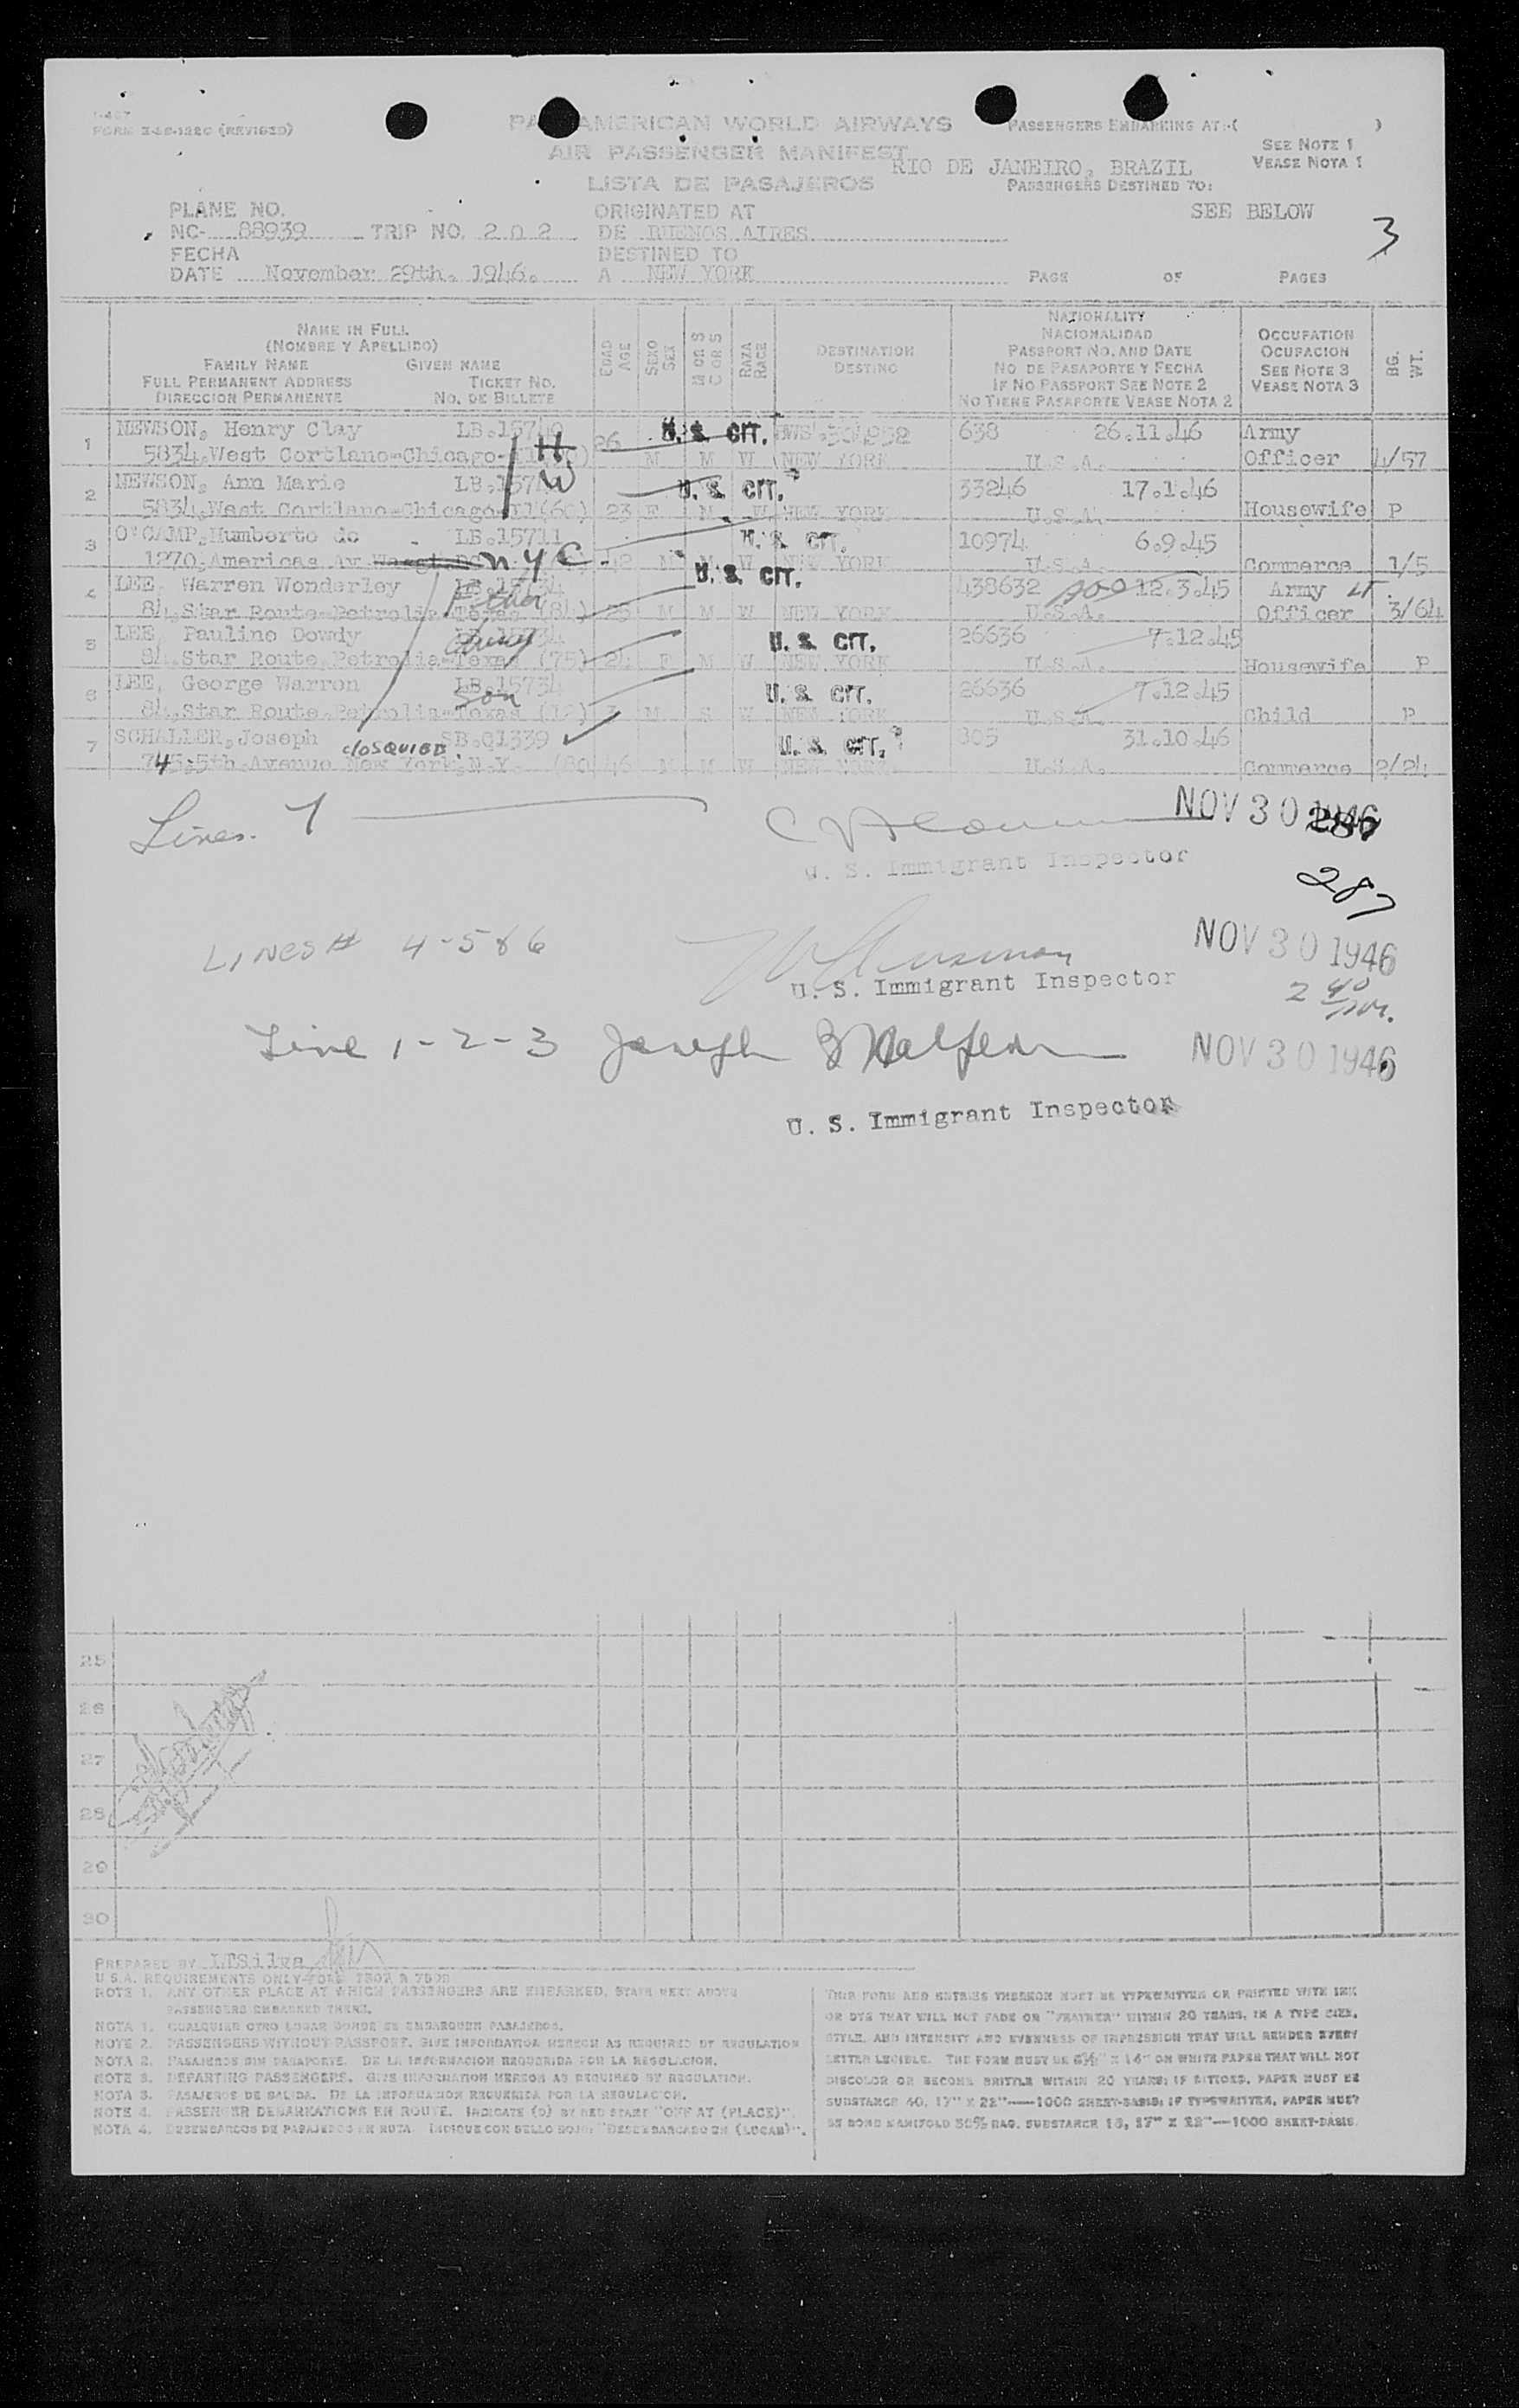 I-467
FORM I-46-122C (REVISED)
PAN AMERICAN WORLD AIRWAYS
AIR PASSENGER MANIFEST
LISTA DE PASAJEROS
PASSENGERS EMBARKING AT:-( )
RIO DE JANEIRO, BRAZIL
PASSENGERS DESTINED TO:
SEE NOTE 1
VEASE NOTA 1
SEE BELOW
3
PLANE NO.
NC- 88939 TRIP NO. 202
ORIGINATED AT
DE BUENOS AIRES
FECHA
DATE November 29th. 1946.
DESTINED TO
A NEW YORK
PAGE OF PAGES
NAME IN FULL
(NOMBRE Y APELLIDO)
FAMILY NAME GIVEN NAME
FULL PERMANENT ADDRESS TICKET NO.
DIRECCION PERMANENTE NO. DE BILLETE
EDAD AGE
SEXO SEX
M OR S C OR S
RAZA RACE
DESTINATION
DESTINO
NATIONALITY
NACIONALIDAD
PASSPORT NO. AND DATE
NO DE PASAPORTE Y FECHA
IF NO PASSPORT SEE NOTE 2
NO TIENE PASAPORTE VEASE NOTA 2
OCCUPATION
OCUPACION
SEE NOTE 3
VEASE NOTA 3
BG. WT.
1 NEWSON, Henry Clay LB.15749 H 26 U. S. CIT. 638 26.11.46 Army
5834,West Cortland-Chicago- M M W NEW YORK U.S.A. Officer 4/57
2 NEWSON, Ann Marie W U. S. CIT. 33246 17.1.46
5834,West Cortland-Chicago-Il(60) 23 F M W NEW YORK U.S.A. Housewife P
3 O'CAMP,Humberto do LB.15711 U. S. CIT. 10974 6.9.45
1270,Americas Av NYC. 42 M M W NEW YORK U.S.A. Commerce 1/5
4 LEE, Warren Wonderley LB.15734 U. S. CIT. 438632 12.3.45 Army LT.
84,Star Route-Petrolia-Texas (84) 25 M M W NEW YORK U.S.A. Officer 3/64
5 LEE, Pauline Dowdy U. S. CIT. 26636 7.12.45
84,Star Route,Petrolia-Texas (75) 24 F M W NEW YORK U.S.A. Housewife P
6 LEE, George Warren LB.15734 Son U. S. CIT. 26636 7.12.45
84,Star Route-Petrolia-Texas (12) 3 M S W NEW YORK U.S.A. Child P
7 SCHALLER,Joseph c/o SQUIBB SB.Q1339 U. S. CIT. 305 31.10.46
745,5th.Avenue New York,N.Y. (80 46 M M W NEW YORK U.S.A. Commerce 2/24
Lines. 7 NOV 30 1946
U. S. Immigrant Inspector
287
LINES # 4-5 & 6 NOV 30 1946
U. S. Immigrant Inspector
2 40 PM.
Line 1-2-3 Joseph NOV 30 1946
U. S. Immigrant Inspector
25
26
27
28
29
30
PREPARED BY LTSilva
NOTE 1. ANY OTHER PLACE AT WHICH PASSENGERS ARE EMBARKED, STATE NEXT ABOVE
PASSENGERS EMBARKED THERE.
NOTA 1. CUALQUIER OTRO LUGAR DONDE SE EMBARQUEN PASAJEROS.
NOTE 2. PASSENGERS WITHOUT PASSPORT. GIVE INFORMATION HEREON AS REQUIRED BY REGULATION
NOTA 2. PASAJEROS SIN PASAPORTE. DE LA INFORMACION REQUERIDA POR LA REGULACION.
NOTE 3. DEPARTING PASSENGERS. GIVE INFORMATION HEREON AS REQUIRED BY REGULATION.
NOTA 3. PASAJEROS DE SALIDA. DE LA INFORMACION REQUERIDA POR LA REGULACION.
NOTE 4. PASSENGER DEBARKATIONS EN ROUTE. INDICATE (D) BY RED STAMP "OFF AT (PLACE)".
NOTA 4. DESEMBARCOS DE PASAJEROS EN RUTA. INDIQUE CON SELLO ROJO: "DESEMBARCADO EN (LUGAR)".
THIS FORM AND ENTRIES THEREON MUST BE TYPEWRITTEN OR PRINTED WITH INK
OR DYE THAT WILL NOT FADE OR "FEATHER" WITHIN 20 YEARS, IN A TYPE SIZE,
STYLE, AND INTENSITY AND EVENNESS OF IMPRESSION THAT WILL RENDER EVERY
LETTER LEGIBLE. THE FORM MUST BE 8½" X 14" ON WHITE PAPER THAT WILL NOT
DISCOLOR OR BECOME BRITTLE WITHIN 20 YEARS; IF DITTOED, PAPER MUST BE
SUBSTANCE 40, 17" X 22"—1000 SHEET-BASIS; IF TYPEWRITTEN, PAPER MUST
BE BOND MANIFOLD 50% RAG, SUBSTANCE 16, 17" X 22"—1000 SHEET-BASIS.